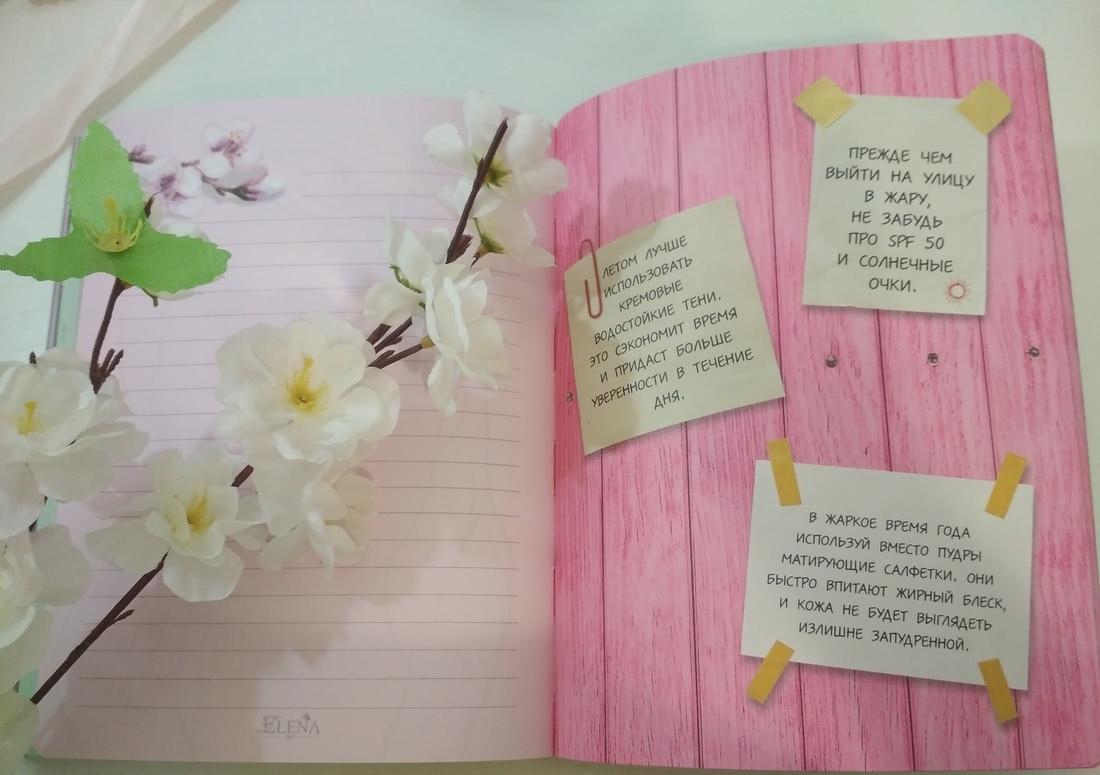 ELENA
ЛЕТОМ ЛУЧШЕ
ИСПОЛЬЗОВАТЬ
КРЕМОВЫЕ
ВОДОСТОЙКИЕ ТЕНИ.
ЭТО СЭКОНОМИТ ВРЕМЯ
И ПРИДАСТ БОЛЬШЕ
УВЕРЕННОСТИ В ТЕЧЕНИЕ
ДНЯ.
ПРЕЖДЕ ЧЕМ
ВЫЙТИ НА УЛИЦУ
В ЖАРУ,
НЕ ЗАБУДЬ
ПРО SPF 50
И СОЛНЕЧНЫЕ
ОЧКИ.
В ЖАРКОЕ ВРЕМЯ ГОДА
ИСПОЛЬЗУЙ ВМЕСТО ПУДРЫ
МАТИРУЮЩИЕ САЛФЕТКИ. ОНИ
БЫСТРО ВПИТАЮТ ЖИРНЫЙ БЛЕСК,
И КОЖА НЕ БУДЕТ ВЫГЛЯДЕТЬ
ИЗЛИШНЕ ЗАПУДРЕННОЙ.